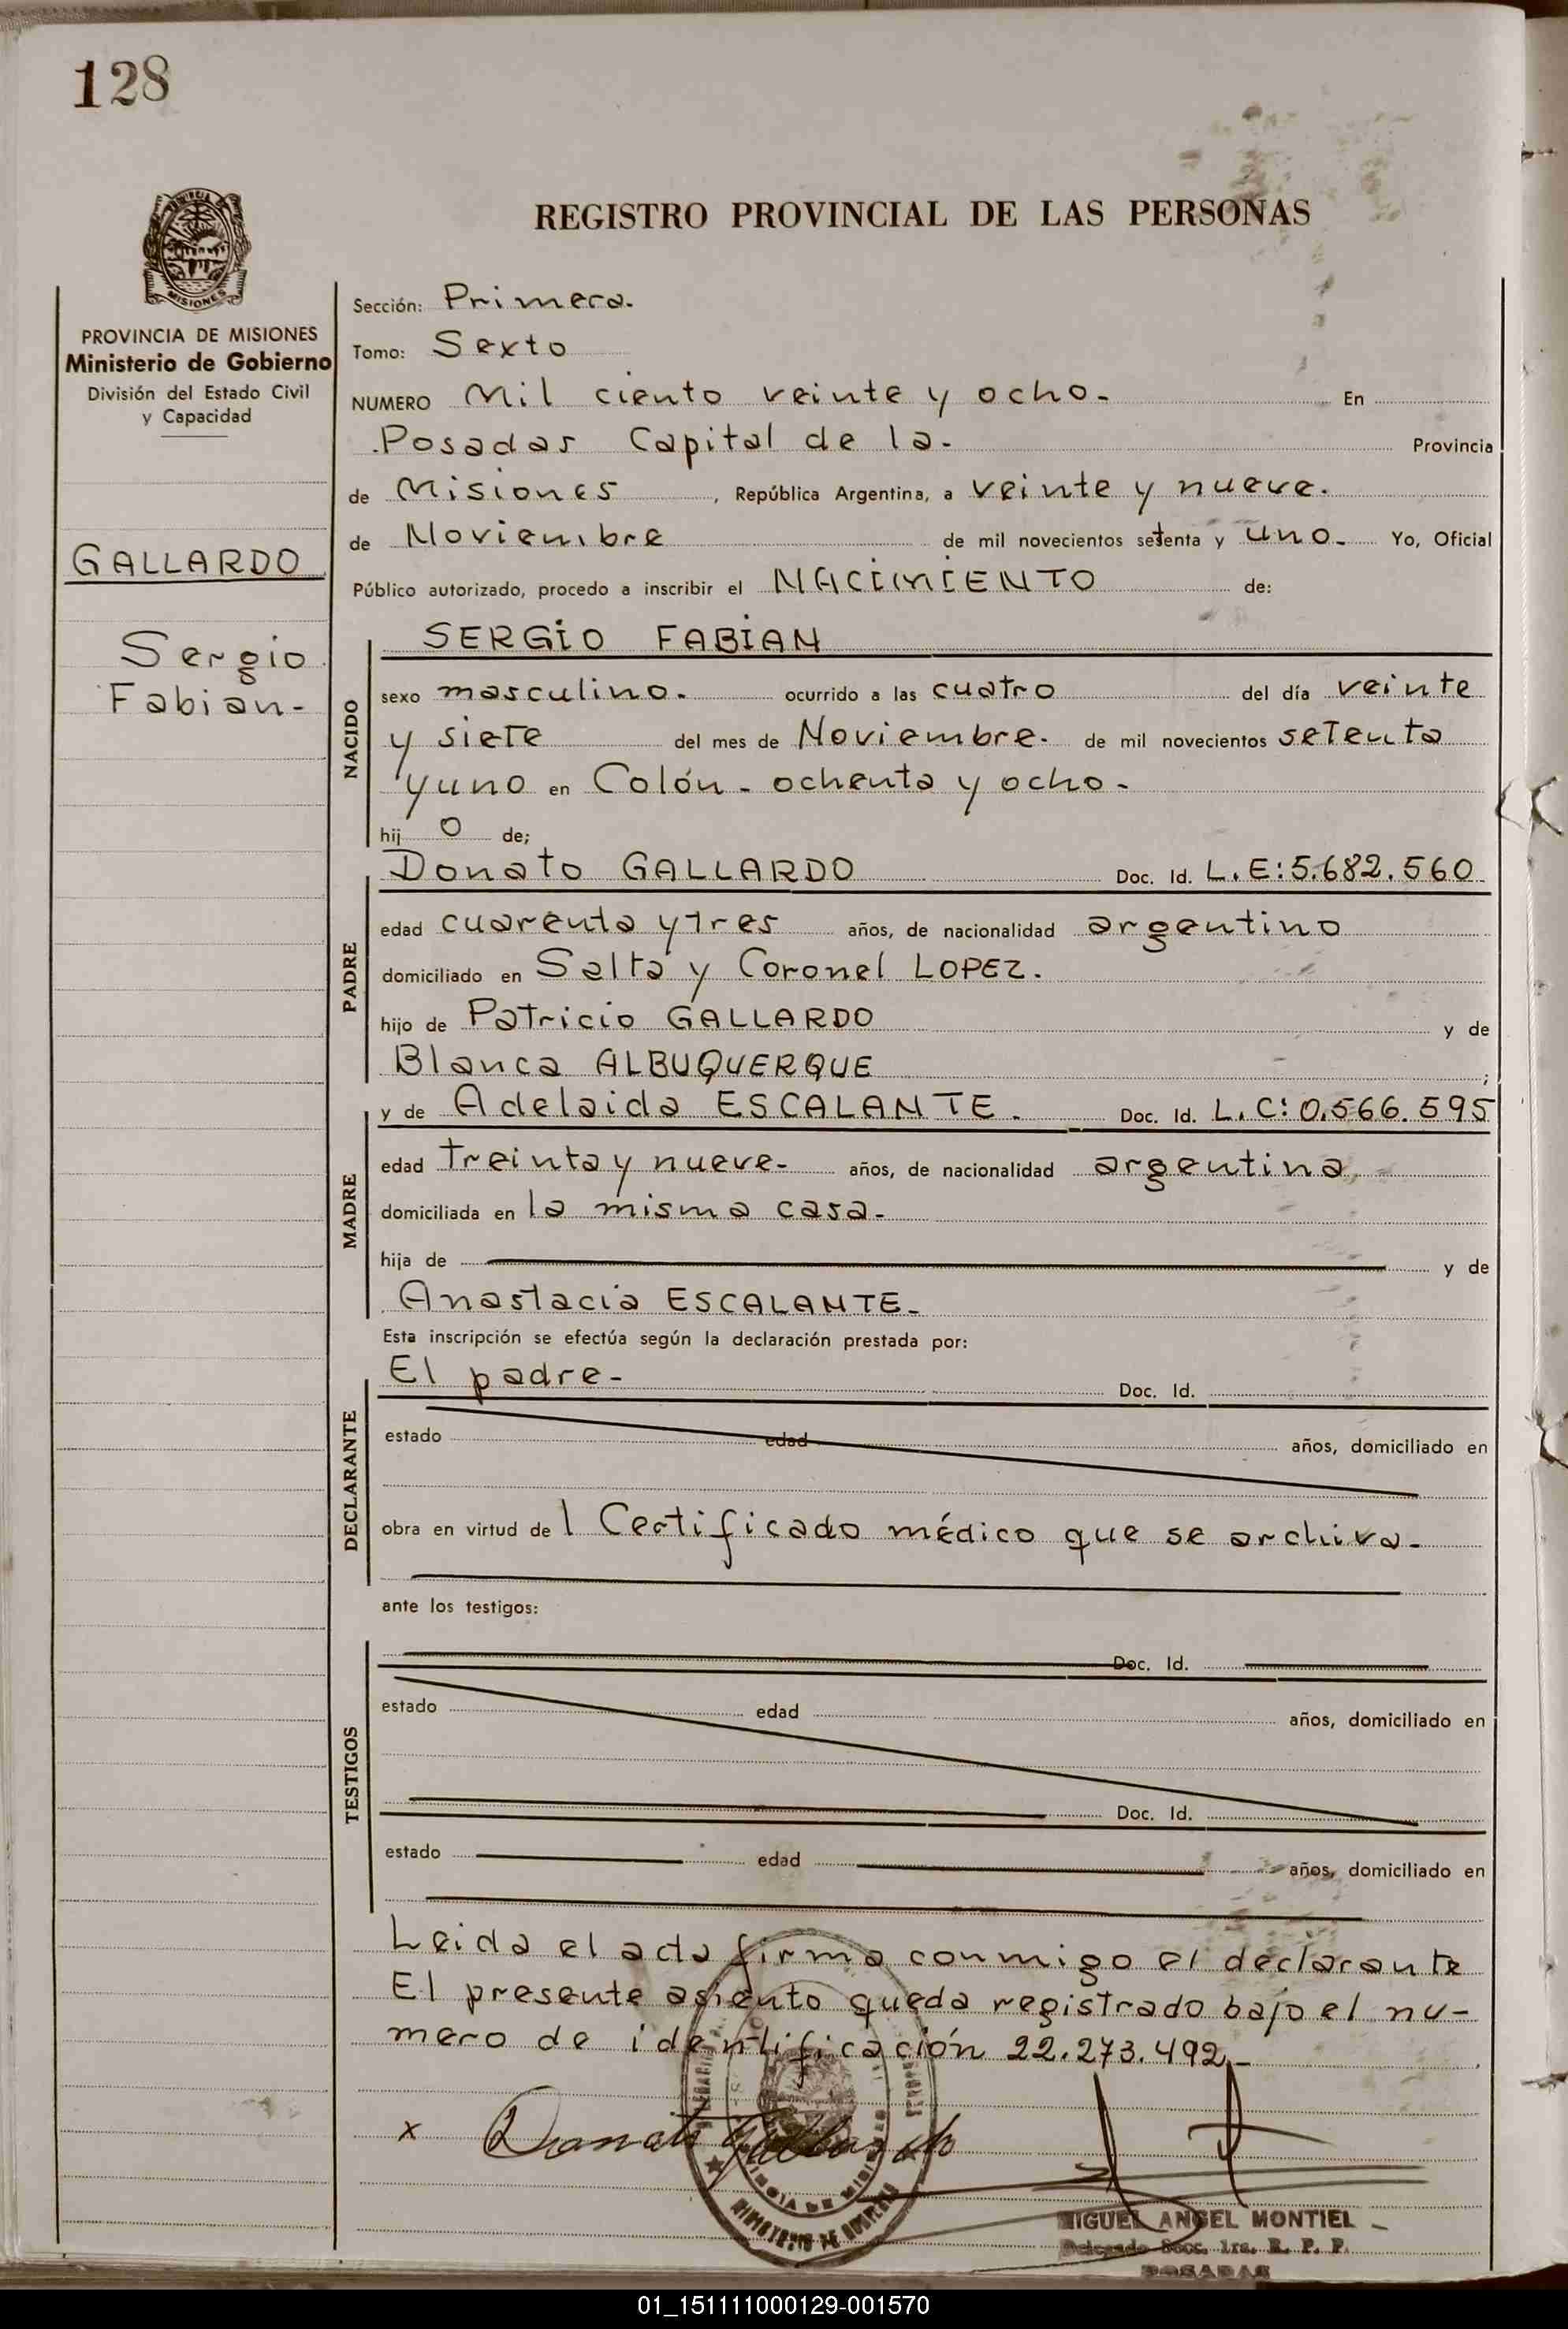 128
REGISTRO PROVINCIAL DE LAS PERSONAS
MISIONES
PROVINCIA DE MISIONES
Ministerio de Gobierno
División del Estado Civil
y Capacidad
GALLARDO
Sergio
Fabian-
Sección: Primera.
Tomo: Sexto
NUMERO Mil ciento veinte y ocho- En
Posadas Capital de la- Provincia
de Misiones, República Argentina, a veinte y nueve.
de Noviembre de mil novecientos setenta y uno- Yo, Oficial
Público autorizado, procedo a inscribir el NACIMIENTO de:
NACIDO
SERGIO FABIAN
sexo masculino. ocurrido a las cuatro del día veinte
y siete del mes de Noviembre. de mil novecientos setenta
y uno en Colón - ochenta y ocho-
hij o de;
PADRE
Donato GALLARDO Doc. Id. L.E:5.682.560
edad cuarenta y tres años, de nacionalidad argentino
domiciliado en Salta y Coronel LOPEZ.
hijo de Patricio GALLARDO y de
Blanca ALBUQUERQUE ;
MADRE
y de Adelaida ESCALANTE. Doc. Id. L.C:0.566.595
edad treinta y nueve- años, de nacionalidad argentina
domiciliada en la misma casa-
hija de y de
Anastacia ESCALANTE-
Esta inscripción se efectúa según la declaración prestada por:
DECLARANTE
El padre- Doc. Id.
estado edad años, domiciliado en
obra en virtud de l Certificado médico que se archiva-
ante los testigos:
TESTIGOS
Doc. Id.
estado edad años, domiciliado en
Doc. Id.
estado edad años, domiciliado en
Leida el acta firma conmigo el declarante
El presente asiento queda registrado bajo el nu-
mero de identificación 22.273.492-
x Donato Gallardo
MINISTERIO DE GOBIERNO
MIGUEL ANGEL MONTIEL
Delegado Secc. 1ra. R. P. P.
POSADAS
01_151111000129-001570